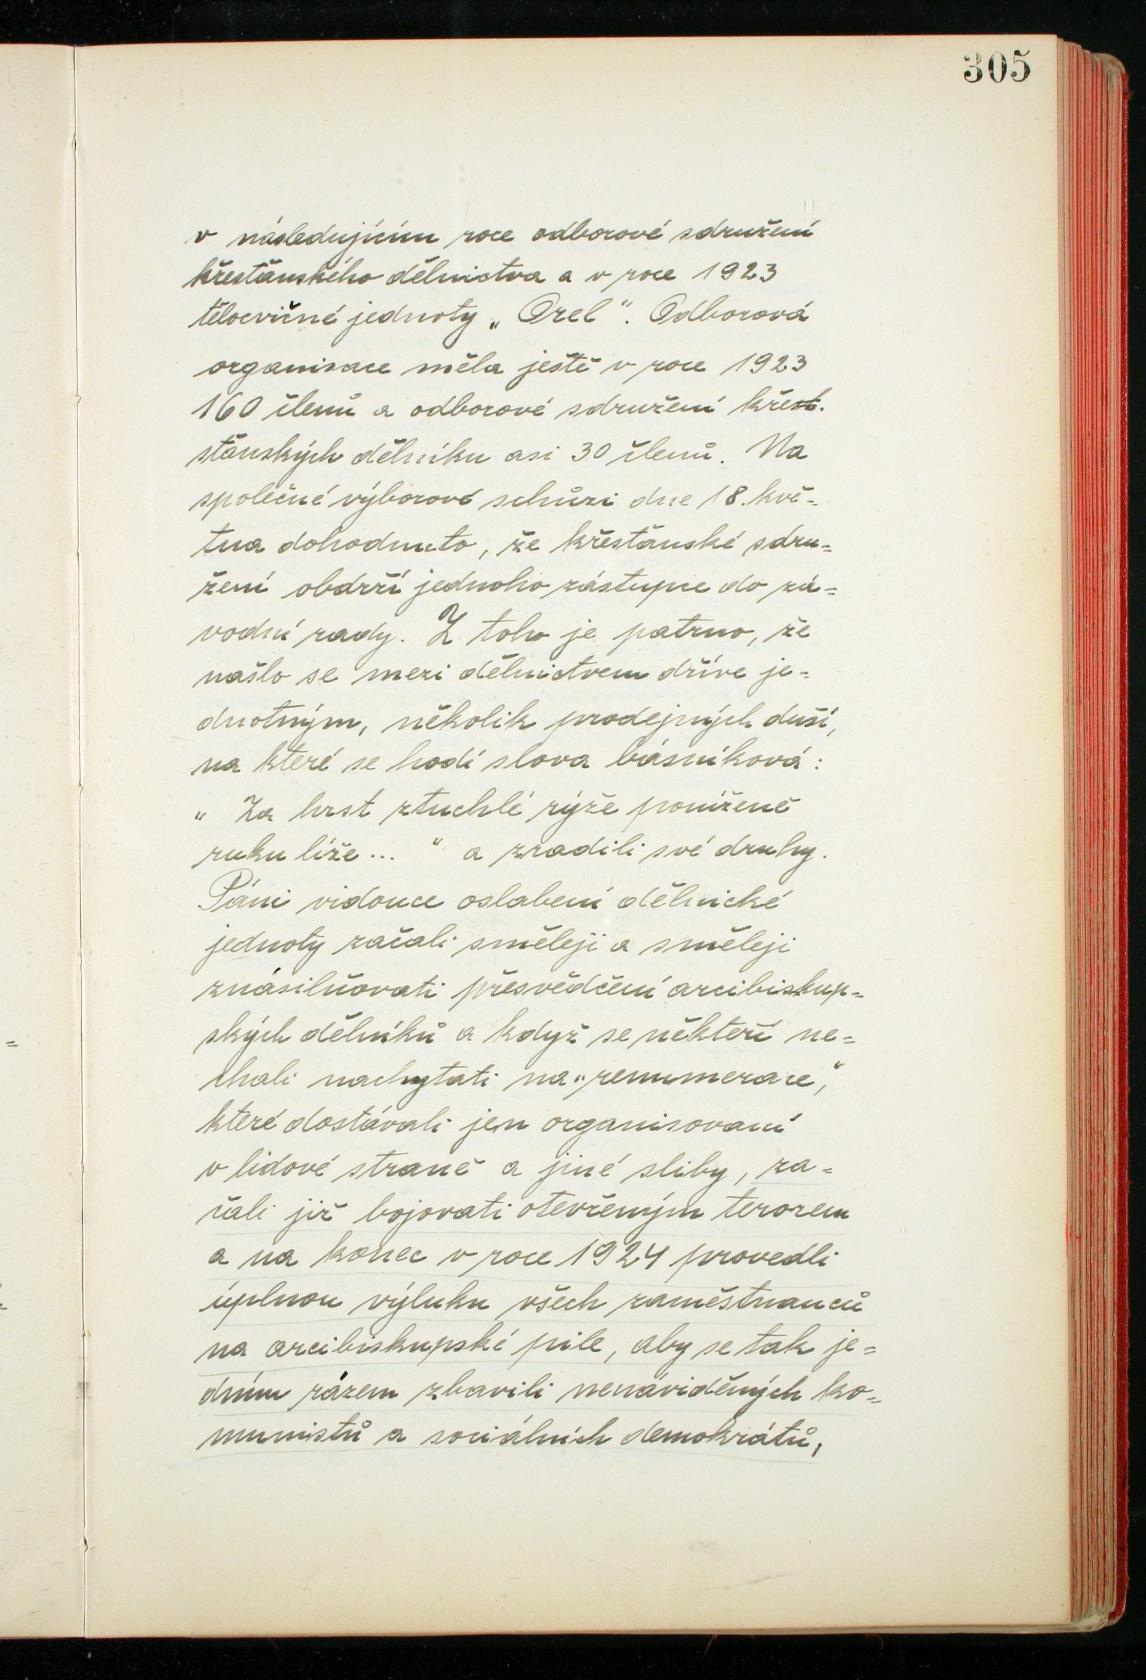 305
v následujícím roce odborové sdružení
křestănského dělnictva a v roce 1923
tělocvičné jednoty „Orel“. Odborová
organisace měla ještě v roce 1923
160 členů a odborové sdružení křest.
stănských dělníku asi 30 členů. Na
společné výborové schůzi dne 18. kvě-
tna dohodnuto, že křestănské sdru-
žení obdrží jednoho zástupce do zá-
vodní rady. Z toho je patrno, že
našlo se mezi dělnictvem dříve je-
dnotným, několik prodejných duší,
na které se hodí slova básníková:
„Za hrst ztuchlé rýže poníženě
ruku líže... “ a zradili své druhy.
Páni vidouce oslabení dělnické
jednoty začali směleji a směleji
znásilňovati přesvědčení arcibiskup-
ských dělníků a když se někteří ne-
chali nachytati na „renumerace,“
které dostávali jen organisovaní
v lidové straně a jiné sliby, za-
čali již bojovati otevřeným terorem
a na konec v roce 1924 provedli
úplnou výluku všech zaměstnanců
na arcibiskupské pile, aby se tak je-
dním rázem zbavili nenáviděných ko-
munistů a sociálních demokrátů,